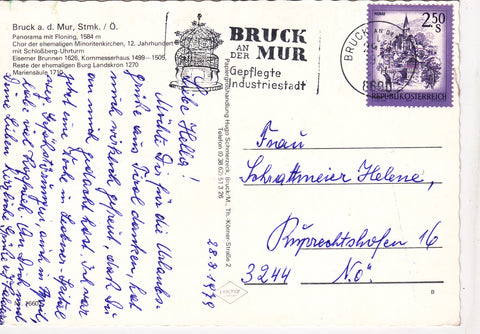 Bruck a. d. Mur, Stmk. / Ö.
Panorama mit Floning, 1584 m
Chor der ehemaligen Minoritenkirchen, 12. Jahrhundert
mit Schloßberg-Uhrturm
Eiserner Brunnen 1626, Kornmesserhaus 1499–1505,
Reste der ehemaligen Burg Landskron 1270
Mariensäule 1710
BRUCK
AN DER MUR
Gepflegte
Industriestadt
BRUCK AN DE
8600
MURAU
2,50
S
REPUBLIK ÖSTERREICH
Papiergroßhandlung Hugo Schmerzeck, Bruck/M., Th.-Körner-Straße 2
Telefon (0 38 62) 51 3 26
Liebe Helene!
Möchte Dir für die Urlaubs-
grüße aus Tirol danken, hat
mich wirklich gefreut, daß Du
an mich gedacht hast. Ich war
jetzt eine Woche in
auch in
viel Kopfweh. An Dich und
Deine Lieben herzliche Grüße
28.8.1979
Frau
Schrattmeier Helene,
Ruprechtshofen 16
3244 N.Ö.
B